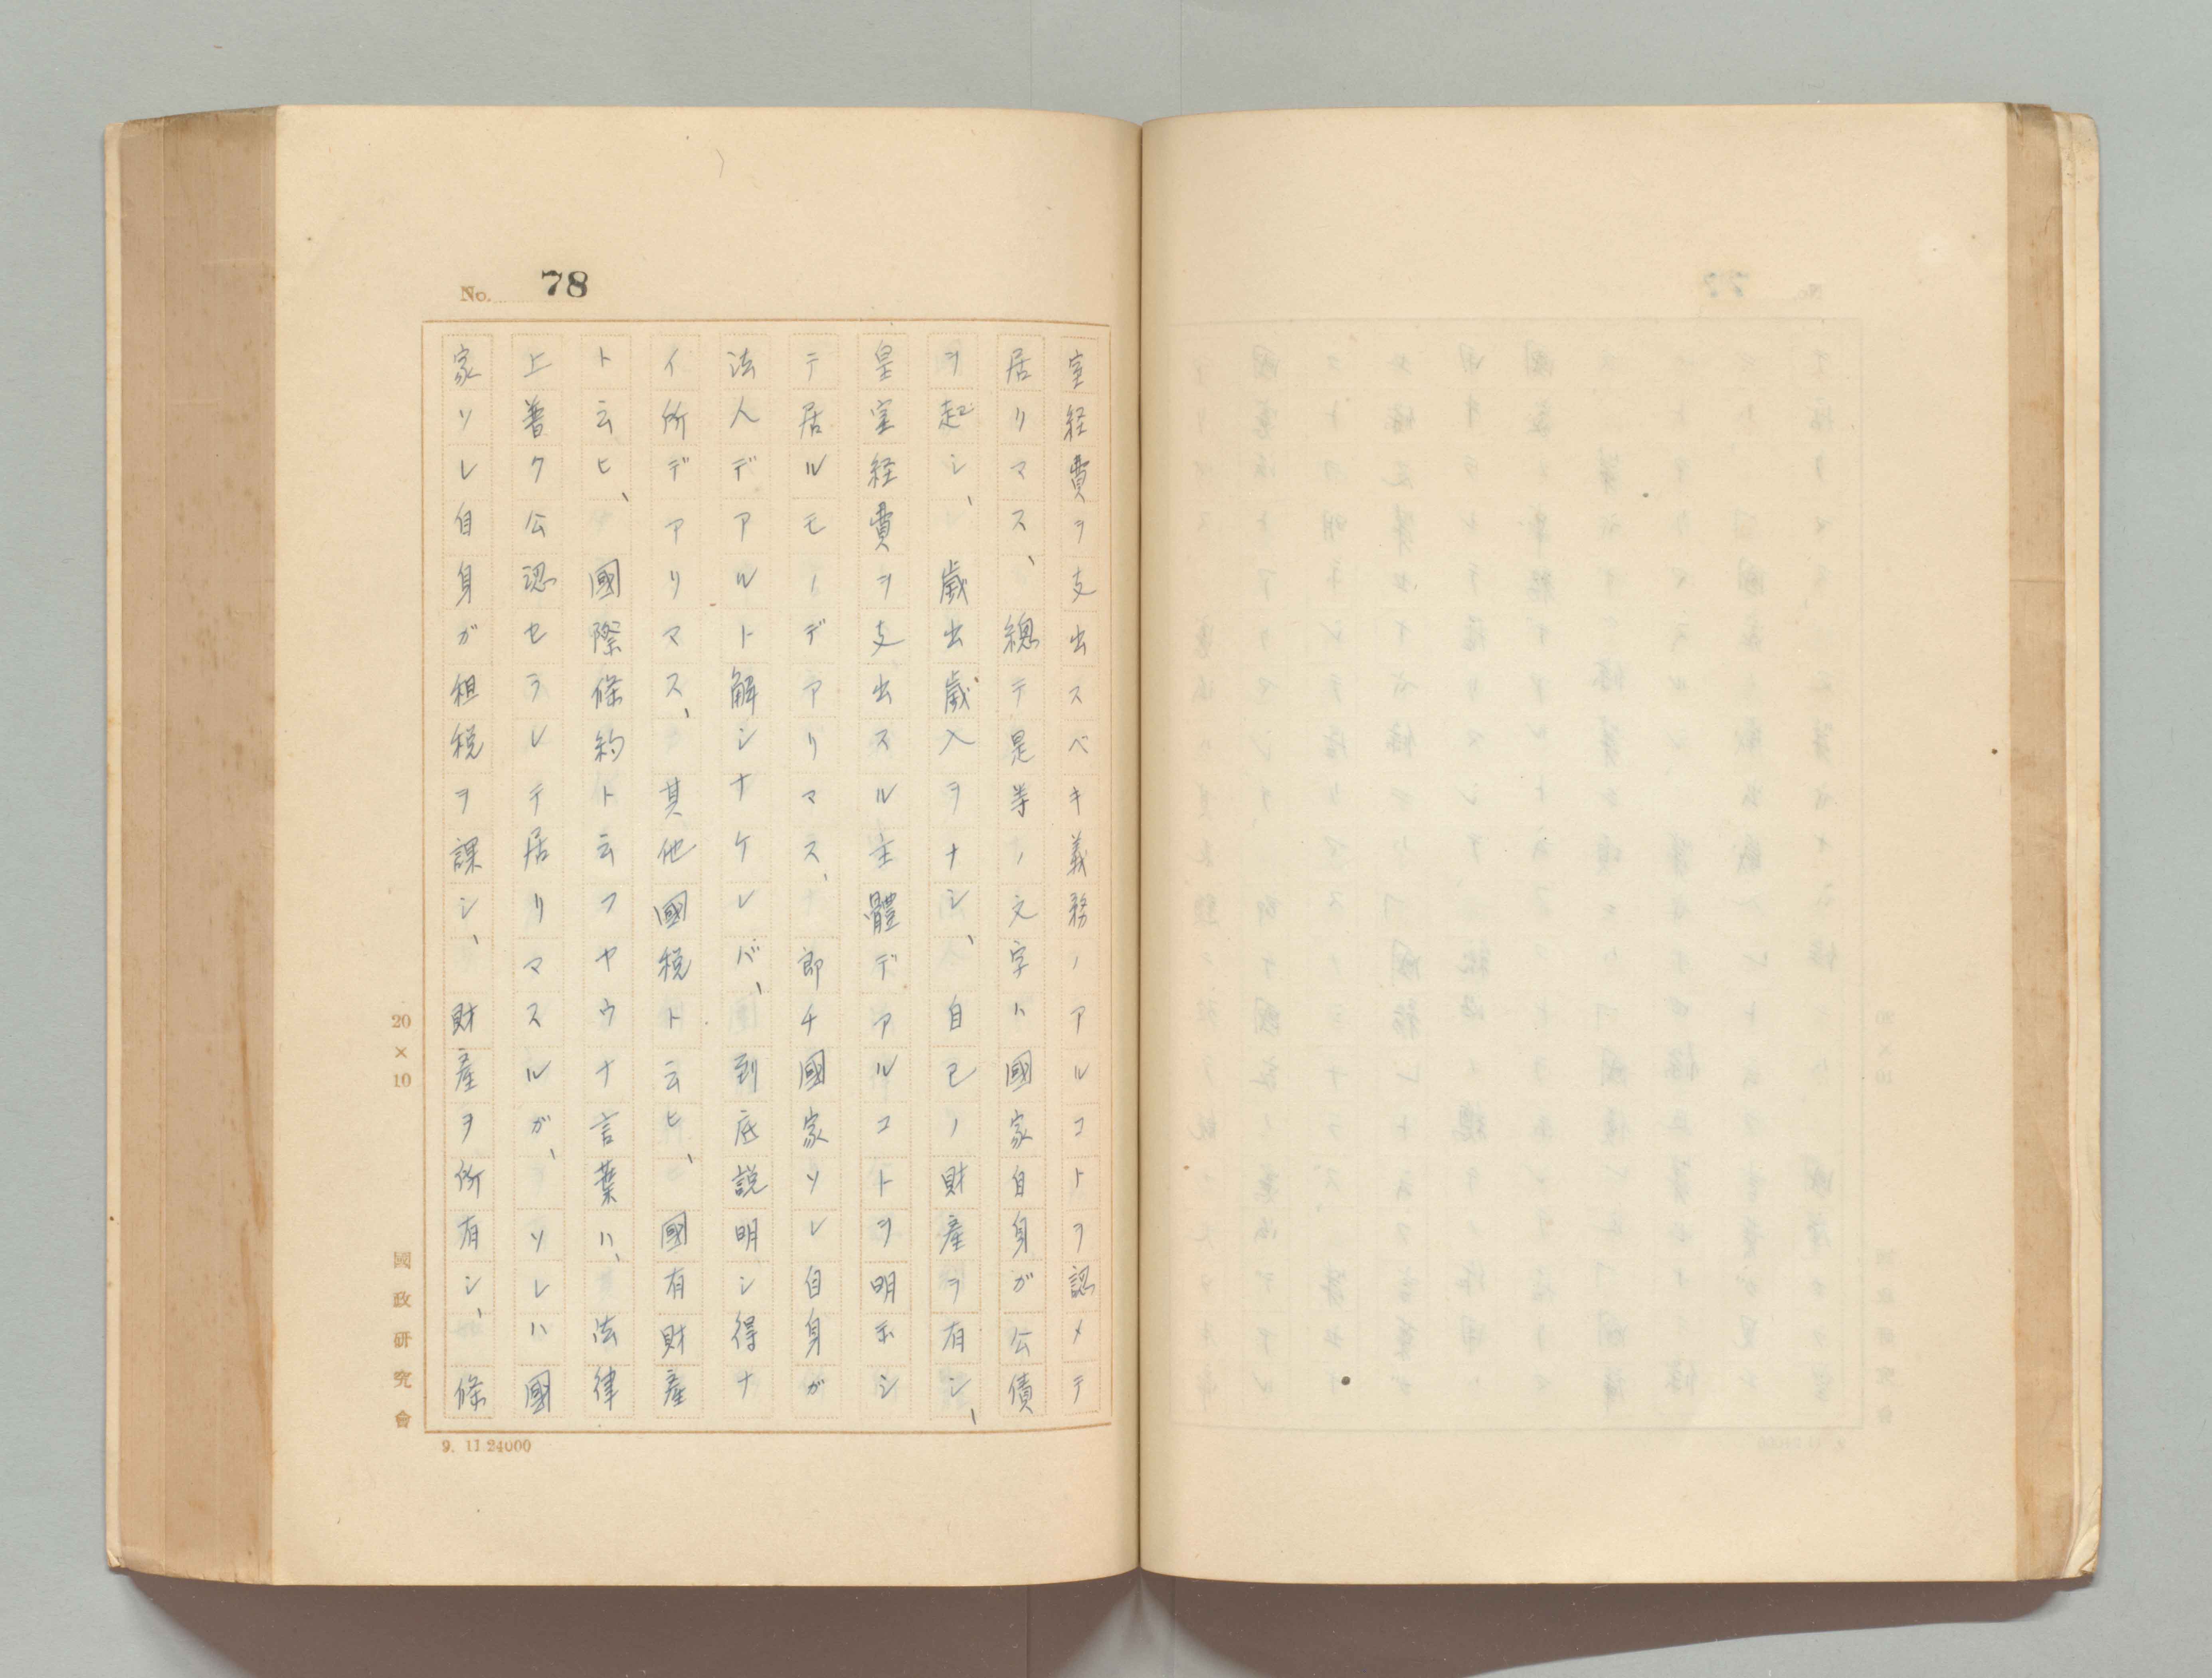 No. 78
室経費ヲ支出スベキ義務ノアルコトヲ認メテ
居リマス、總テ是等ノ文字ハ國家自身ガ公債
ヲ起シ、歳出歳入ヲナシ、自己ノ財産ヲ有シ、
皇室経費ヲ支出スル主體デアルコトヲ明示シ
テ居ルモノデアリマス、即チ國家ソレ自身ガ
法人デアルト解シナケレバ、到底説明シ得ナ
イ所デアリマス、其他國税ト云ヒ、國有財産
ト云ヒ、國際條約ト云フヤウナ言葉ハ、法律
上普ク公認セラレテ居リマスルガ、ソレハ國
家ソレ自身ガ租税ヲ課シ、財産ヲ所有シ、條
20×10
國政研究會
9. 11.24000